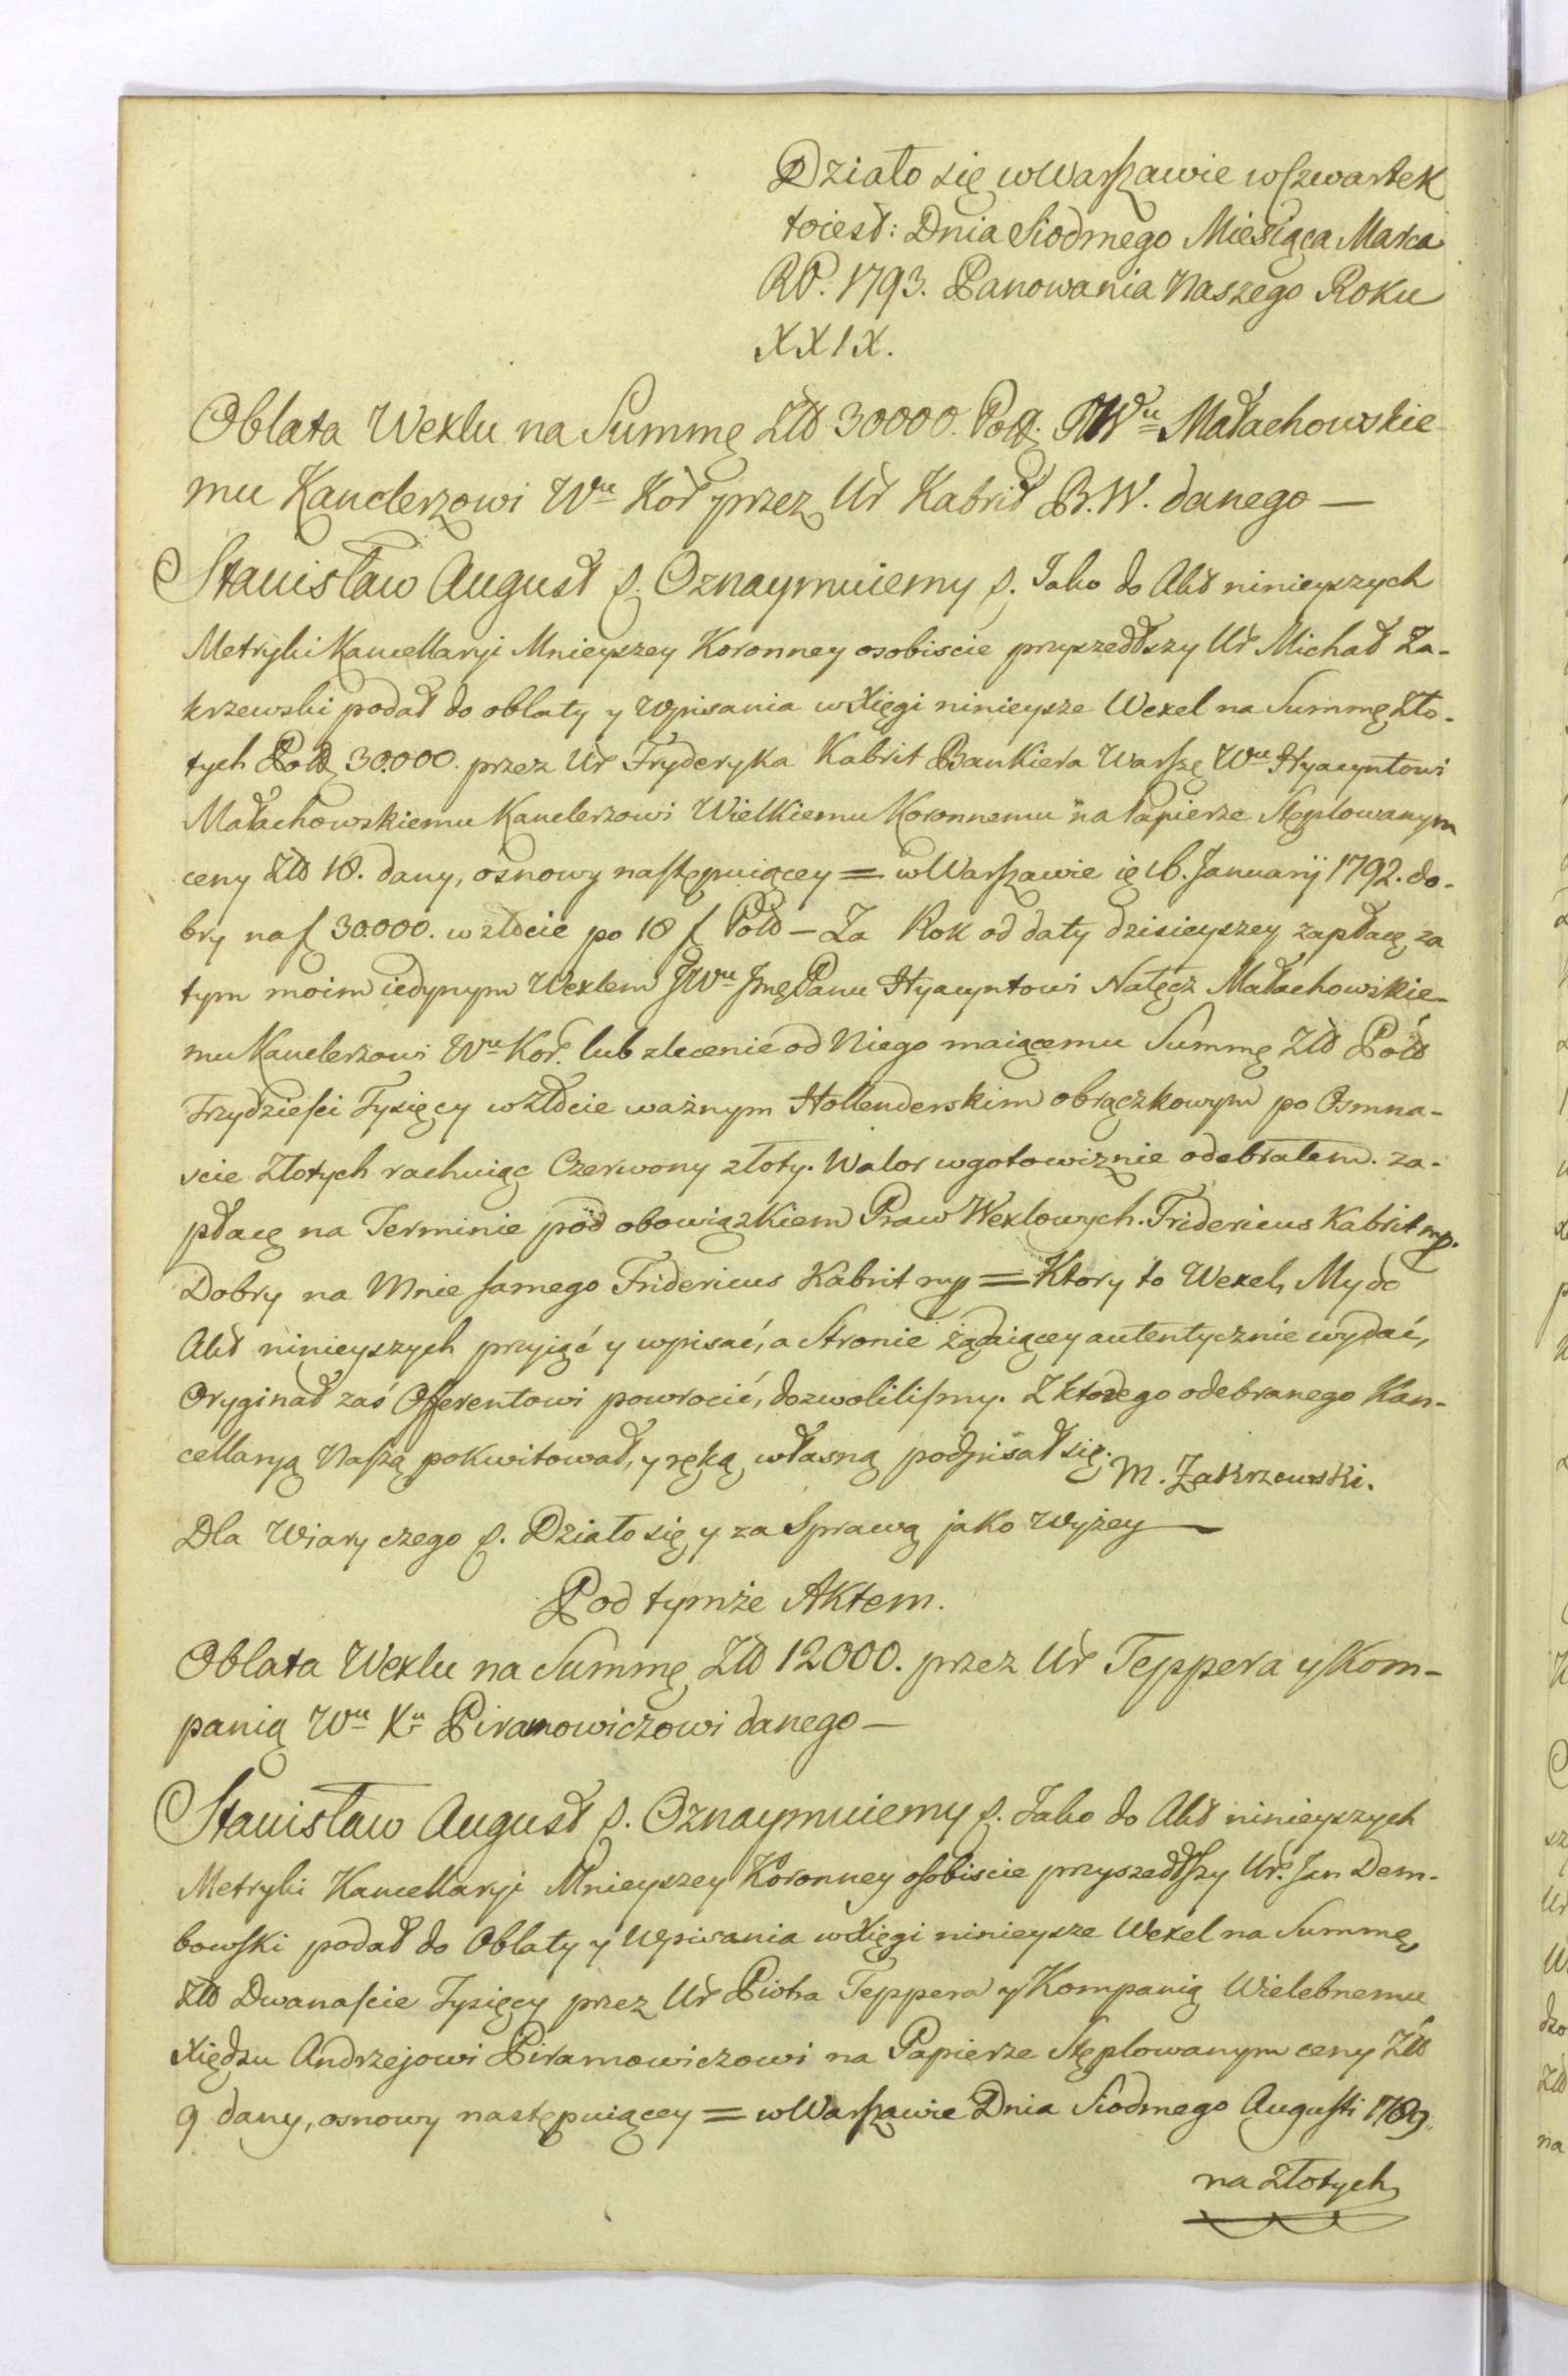 Działo się w Warszawie w Czwartek
toiest: Dnia Siodmego Miesiąca Marca
RP. 1793. Panowania Naszego Roku
XXIX.
Oblata Wexlu na Summę Złł 30000. Pol. JWu Małachowskie-
mu Kanclerzowi Wu Kor przez Ur Kabrit B.W. danego —
Stanisław August p. Oznaymuiemy p. Jako do Akt ninieyszych
Metryki Kancellaryi Mnieyszey Koronney osobiscie przyszedłszy Ur Michał Za-
krzewski podał do oblaty y wpisania w Xięgi ninieysze Wexel na Summę Zło-
tych Pol 30.000. przez Ur Fryderyka Kabrit Bankiera Warsz Wu Hyacyntowi
Małachowskiemu Kanclerzowi Wielkiemu Koronnemu na Papierze Stęplowanym
ceny Złł 18. dany, osnowy następuiącey = w Warszawie 16. Januarij 1792. do-
bry na f 30.000. w złocie po 18 f Pol — Za Rok od daty dzisieyszey zapłacę za
tym moim iedynym Wexlem JWu Jmę Panu Hyacyntowi Nałęcz Małachowskie-
mu Kanclerzowi Wu Kor. lub zlecenie od Niego maiącemu Summę Złł Pol
Trzydzieści Tysięcy w Złocie ważnym Hollenderskim obrączkowym po Osmna-
scie Złotych rachuiąc Czerwony złoty. Walor w gotowiznie odebrałem. za-
płacę na Terminie pod obowiązkiem Praw Wexlowych. Fridericus Kabrit mp.
Dobry na Mnie samego Fridericus Kabrit mp = Ktory to Wexel, My do
Akt ninieyszych przyiąć y wpisać, a Stronie żądaiącey autentycznie wydać,
Oryginał zaś Offerentowi powrocić, dozwolilismy. Z ktorego odebranego Kan-
cellaryą Naszą pokwitował, y ręką własną podpisał się. M. Zakrzewski.
Dla Wiary czego p. Działo się y za Sprawą jako wyżey —
Pod tymże Aktem.
Oblata Wexlu na Summę Złł 12000. przez Ur Teppera y Kom-
panią Wu Xu Piramowiczowi danego —
Stanisław August p. Oznaymuiemy p. Jako do Akt ninieyszych
Metryki Kancellaryi Mnieyszey Koronney osobiscie przyszedłszy Ur. Jan Dem-
bowski podał do Oblaty y Wpisania w Xięgi ninieysze Wexel na Summę
Złł Dwanascie Tysięcy przez Ur Piotra Teppera y Kompanią Wielebnemu
Xiędzu Andrzejowi Piramowiczowi na Papierze Stęplowanym ceny Złł
9 dany, osnowy następuiącey = w Warszawie Dnia Siodmego Augusti 1789.
na Złotych